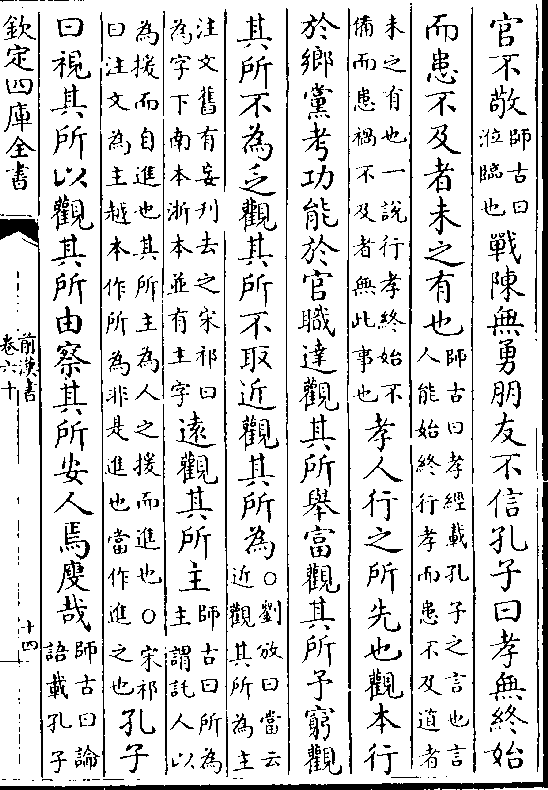 官不敬師古曰涖臨也戰陳無勇朋友不信孔子曰孝無終始
而患不及者未之有也師古曰孝經載孔子之言也言人能始終行孝而患不及道者
未之有也一說行孝終始不備而患禍不及者無此事也孝人行之所先也觀本行
於鄉黨考功能於官職達觀其所舉富觀其所予窮觀
其所不為乏觀其所不取近觀其所為○劉放曰當云近觀其所為主
注文舊有妄刋去之宋祁曰為字下南本浙本並有主字遠觀其所主師古曰所為主謂託人以
為援而自進也其所主為人之援而進也○宋祁曰注文為主越本作所為非是進也當作進之也孔子
曰視其所以觀其所由察其所安人焉廋哉師古曰論語載孔子
欽定四庫全書
前漢書
卷六十
十四